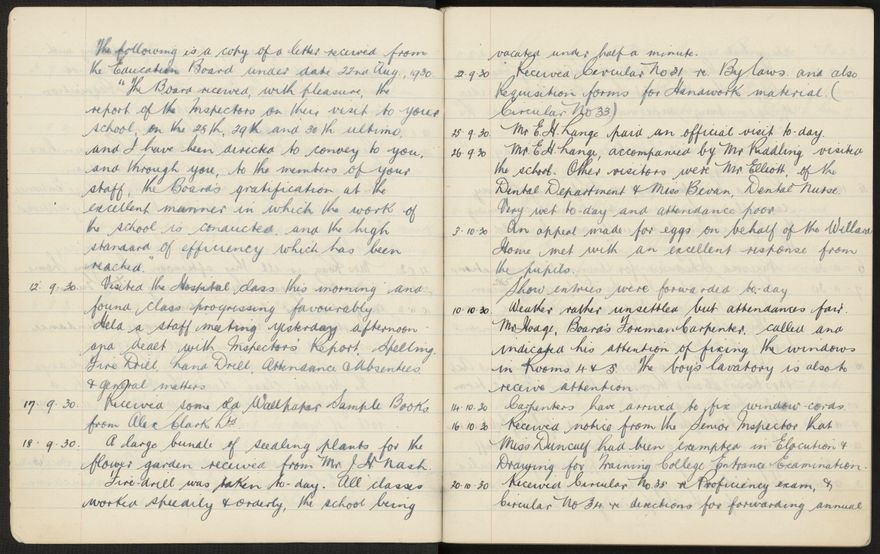 The following is a copy of a letter received from
the Education Board under date 22nd Aug, 1930.
"The Board received, with pleasure, the
report of the Inspectors on their visit to your
school, on the 28th, 29th and 30th ultimo,
and I have been directed to convey to you,
and through you, to the members of your
staff, the Board's gratification at the
excellent manner in which the work of
the school is conducted and the high
standard of efficiency which has been
reached."
12. 9. 30. Visited the Hospital class this morning and
found class progressing favourably.
Held a staff meeting yesterday afternoon
and dealt with Inspectors' Report, Spelling,
Fire Drill, Hand Drill, Attendance & Absentees
& general matters
17. 9. 30. Received some old Wallpaper Sample Books
from Alex Clark Ltd
18. 9. 30. A large bundle of seedling plants for the
flower garden received from Mr J. H. Nash.
Fire-drill was taken to-day. All classes
worked speedily & orderly, the school being
vacated under half a minute.
22. 9. 30 Received Circular No 31 re. By laws. and also
Requisition forms for Handwork material. (
Circular No 33)
25. 9. 30 Mr E. H. Lange paid an official visit to-day.
26. 9. 30 Mr E. H. Lange, accompanied by Mr Rudling visited
the school. Other visitors were Mr Elliott, of the
Dental Department & Miss Bevan, Dental Nurse.
Very wet to-day and attendance poor
3. 10. 30 An appeal made for eggs on behalf of the Willard
Home met with an excellent response from
the pupils.
Show entries were forwarded to-day
10. 10. 30. Weather rather unsettled but attendances fair.
Mr Hodge, Board's Foreman Carpenter, called and
indicated his attention of fixing the windows
in Rooms 4 & 5. The boy's lavatory is also to
receive attention
14. 10. 30 Carpenters have arrived to fix window cords
16. 10. 30 Received notice from the Senior Inspector that
Miss Duncalf had been exempted in Elocution &
Drawing for Training College Entrance Examination.
20. 10. 30 Received Circular No. 35 re Proficiency exam, &
Circular No 34 re directions for forwarding annual